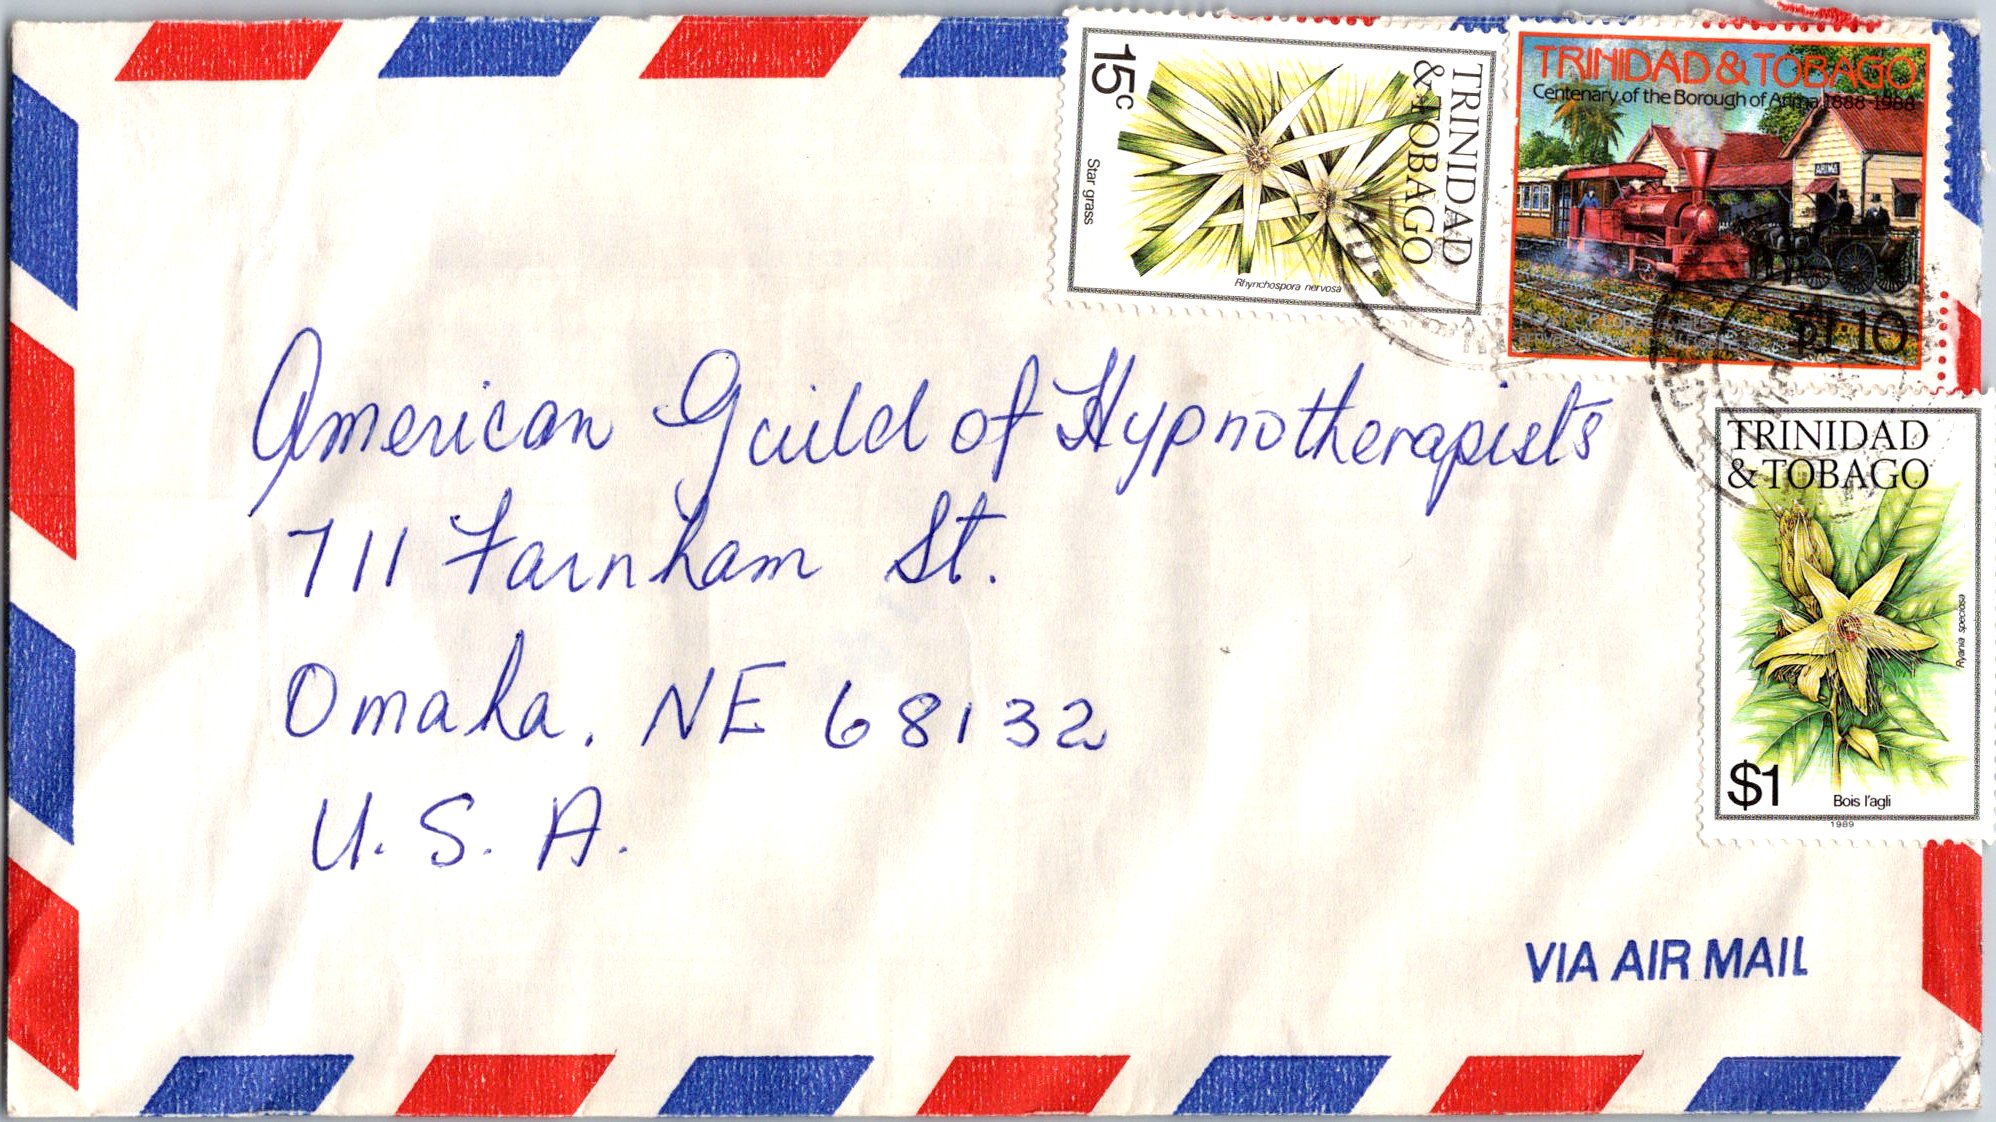 15c
Star grass
TRINIDAD
& TOBAGO
Rhynchospora nervosa
TRINIDAD & TOBAGO
Centenary of the Borough of Arima 1888-1988
ARIMA
$1.10
American Guild of Hypnotherapists
711 Farnham St.
Omaha, NE 68132
U. S. A.
TRINIDAD
& TOBAGO
Ryania speciosa
$1
Bois l'agli
1989
VIA AIR MAIL